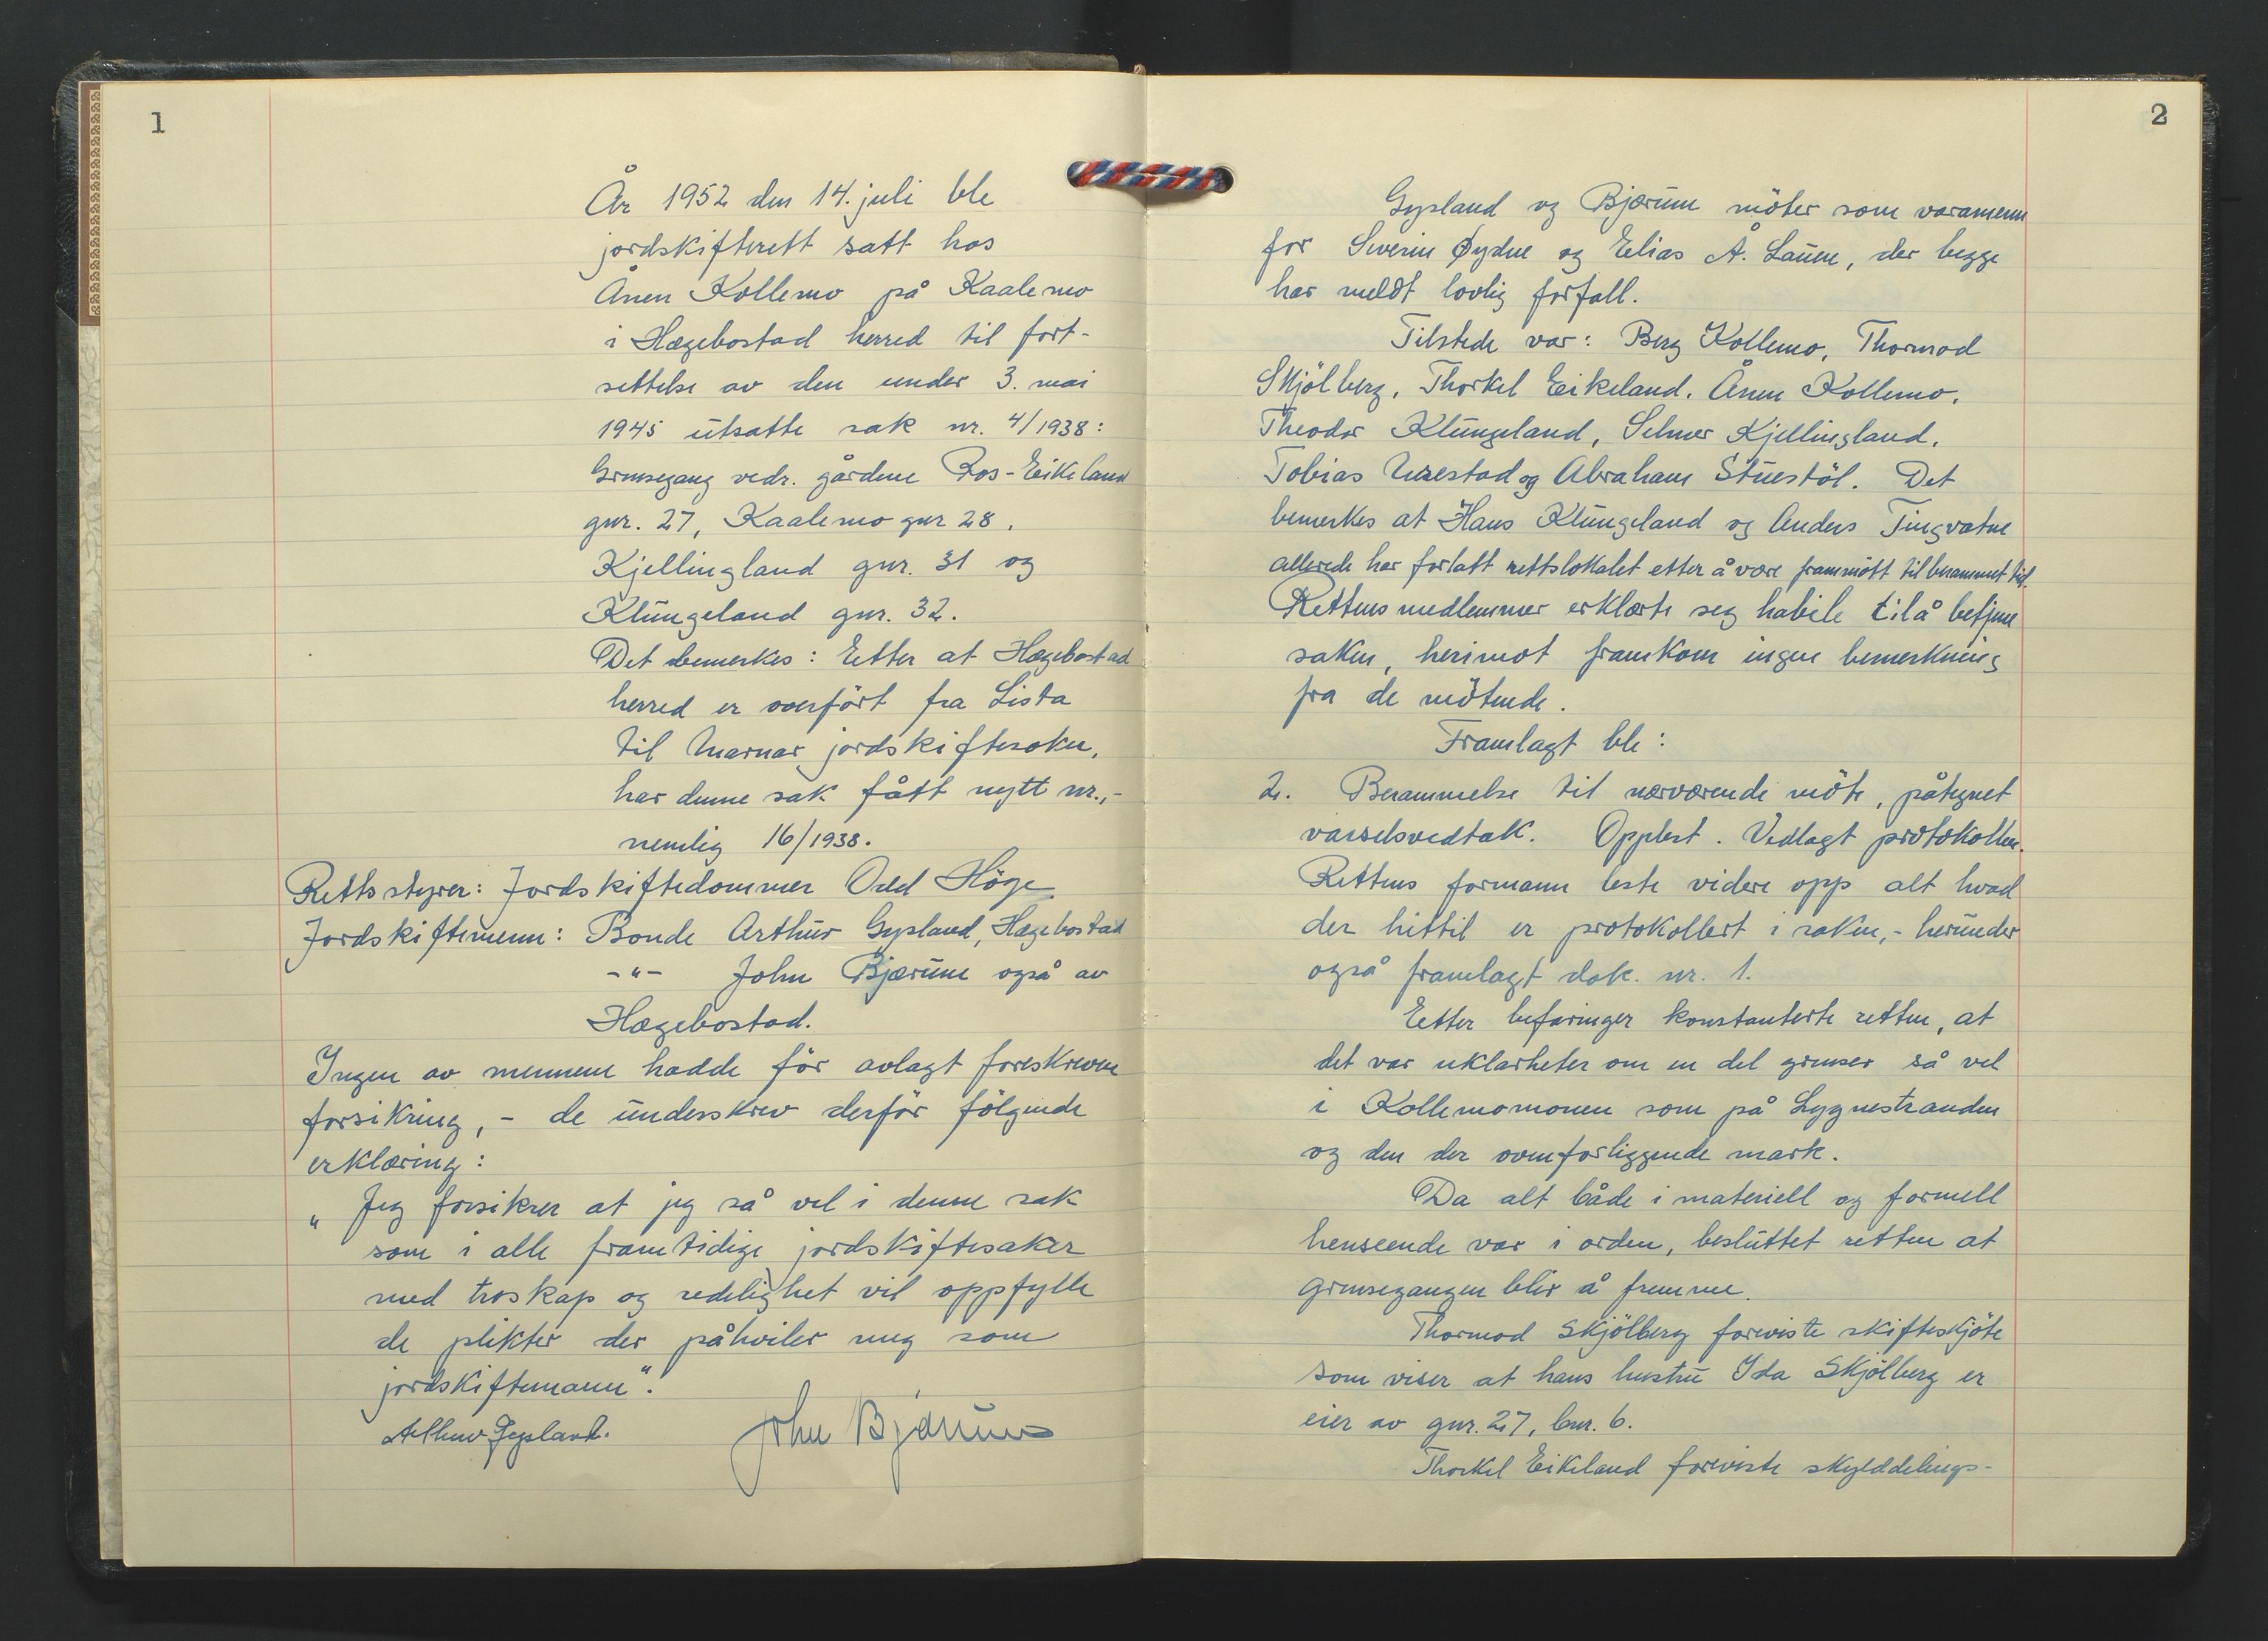 1
År 1952 den 14. juli ble
jordskifterett satt hos
Ånen Kollemo på Kaalemo
i Hægebostad herred til fort-
settelse av den under 3. mai
1945 utsatte sak nr. 4/1938:
Grensegang vedr. gårdene Ros-Eikeland
gnr. 27, Kaalemo gnr 28,
Kjellingland gnr. 31 og
Klungeland gnr. 32.
Det bemerkes: Etter at Hægebostad
herred er overført fra Lista
til Marnar jordskiftesokn,
har denne sak fått nytt nr.,-
nemlig 16/1938.
Rettsstyrer: Jordskiftedommer Odd Höge
Jordskiftemenn: Bonde Arthur Gysland, Hægebostad
-"- John Bjærum også av
Hægebostad.
Ingen av mennene hadde för avlagt foreskreven
forsikring, - de underskrev derför fölgende
erklæring:
„ Jeg forsikrer at jeg så vel i denne sak
som i alle framtidige jordskiftesaker
med troskap og redelighet vil oppfylle
de plikter der påhviler meg som
jordskiftemann".
Arthur Gysland. John Bjærum
2
Gysland og Bjærum möter som varamenn
for Severin Øydne og Elias Å. Lauen, der begge
har meldt lovlig forfall.
Tilstede var: Berg Kollemo, Thormod
Skjölberg, Thorkel Eikeland, Ånen Kollemo,
Theodor Klungeland, Selmer Kjellingland,
Tobias Urestad og Abraham Stuestöl. Det
bemerkes at Hans Klungeland og Anders Tingvatne
allerede har forlatt rettslokalet etter å være frammött til berammet tid.
Rettens medlemmer erklærte seg habile til å betjene
saken, herimot framkom ingen bemerkning
fra de mötende.
Framlagt ble:
2. Berammelse til nærværende möte, påtegnet
varselsvedtak. Opplest. Vedlagt protokollen.
Rettens formann leste videre opp alt hvad
der hittil er protokollert i saken,- herunder
også framlagt dok. nr. 1.
Etter befaringer konstanterte retten, at
det var uklarheter om en del grenser så vel
i Kollemomonen som på Lygnestranden
og den der ovenforliggende mark.
Da alt både i materiell og formell
henseende var i orden, besluttet retten at
grensegangen blir å fremme.
Thormod Skjölberg foreviste skifteskjöte
som viser at hans hustru Ida Skjölberg er
eier av gnr. 27, bnr. 6.
Thorkel Eikeland foreviste skylddelings-